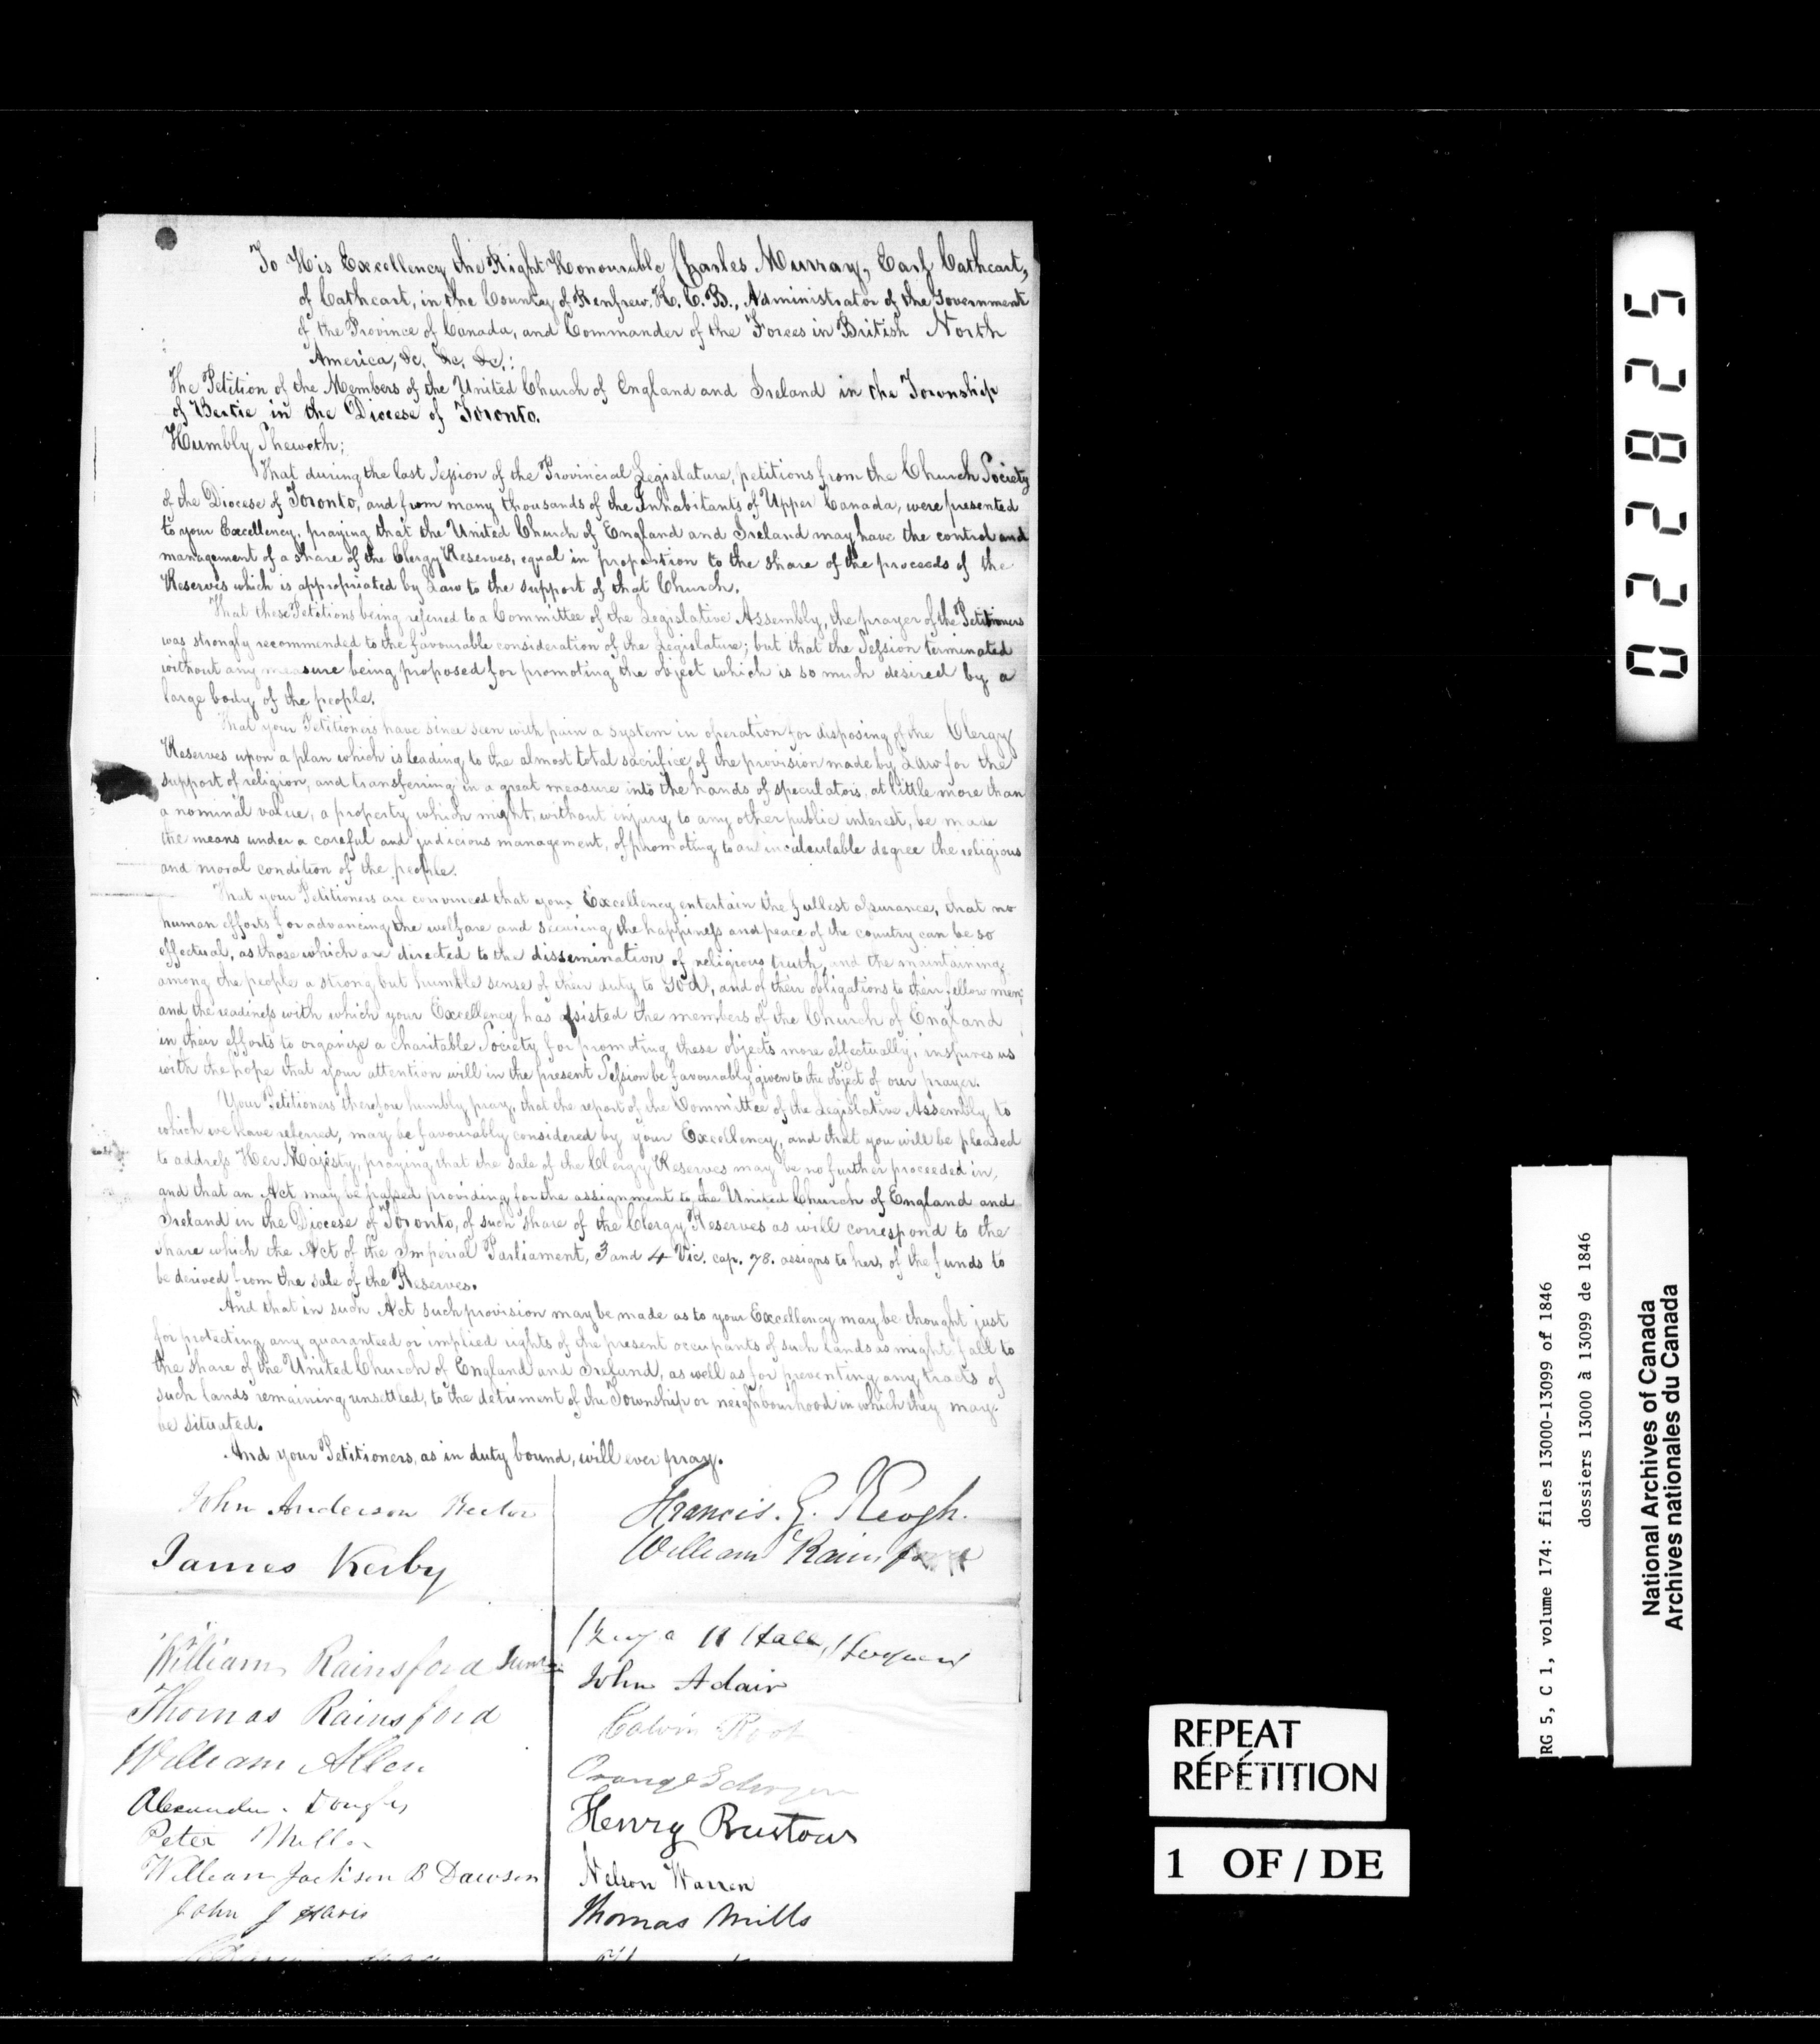 To His Excellency the Right Honourable Charles Murray, Earl Cathcart,
of Cathcart, in the County of Renfrew, K. C. B., Administrator of the Government
of the Province of Canada, and Commander of the Forces in British North
America, &c. &c. &c.:
The Petition of the Members of the United Church of England and Ireland in the Township
of Bertie in the Diocese of Toronto.
Humbly Sheweth;
That during the last Session of the Provincial Legislature, petitions from the Church Society
of the Diocese of Toronto, and from many thousands of the Inhabitants of Upper Canada, were presented
to your Excellency, praying that the United Church of England and Ireland may have the control and
management of a share of the Clergy Reserves, equal in proportion to the share of the proceeds of the
Reserves which is appropriated by Law to the support of that Church.
That these Petitions being referred to a Committee of the Legislative Assembly, the prayer of the Petitioners
was strongly recommended to the favourable consideration of the Legislature; but that the Session terminated
without any measure being proposed for promoting the object which is so much desired by a
large body of the people.
That your Petitioners have since seen with pain a system in operation for disposing of the Clergy
Reserves upon a plan which is leading to the almost total sacrifice of the provision made by Law for the
support of religion, and transferring in a great measure into the hands of speculators, at little more than
a nominal value, a property which might, without injury to any other public interest, be made
the means under a careful and judicious management, of promoting to an incalculable degree the religious
and moral condition of the people.
That your Petitioners are convinced that your Excellency entertain the fullest assurance, that no
human efforts for advancing the welfare and securing the happiness and peace of the country can be so
effectual, as those which are directed to the dissemination of religious truth, and the maintaining
among the people a strong but humble sense of their duty to God, and of their obligations to their fellow men;
and the readiness with which your Excellency has assisted the members of the Church of England
in their efforts to organize a charitable Society for promoting these objects more effectually, inspires us
with the hope that your attention will in the present Session be favourably given to the object of our prayer.
Your Petitioners therefore humbly pray, that the report of the Committee of the Legislative Assembly, to
which we have referred, may be favourably considered by your Excellency, and that you will be pleased
to address Her Majesty, praying that the sale of the Clergy Reserves may be no further proceeded in,
and that an Act may be passed providing for the assignment to the United Church of England and
Ireland in the Diocese of Toronto, of such share of the Clergy Reserves as will correspond to the
share which the Act of the Imperial Parliament, 3 and 4 Vic. cap. 78. assigns to her, of the funds to
be derived from the sale of the Reserves.
And that in such Act such provision may be made as to your Excellency may be thought just
for protecting any guaranteed or implied rights of the present occupants of such lands as might fall to
the share of the United Church of England and Ireland, as well as for preventing any tracts of
such lands remaining unsettled, to the detriment of the Township or neighbourhood in which they may
be situated.
And your Petitioners, as in duty bound, will ever pray.
John Anderson Rector
James Kerby
William Rainsford Junr
Thomas Rainsford
William Allen
Alexander Douglas
Peter Miller
William Jackson B Dawson
John J
Francis. G. Keogh.
William Rainsford
Hall,
John Adair
Calvin Root
Orange
Henry
Nelson Warren
Thomas Mills
022825
RG 5, C 1, volume 174: files 13000-13099 of 1846
dossiers 13000 à 13099 de 1846
National Archives of Canada
Archives nationales du Canada
REPEAT
RÉPÉTITION
1 OF / DE